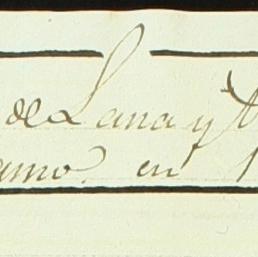 de Lana y
amo. en